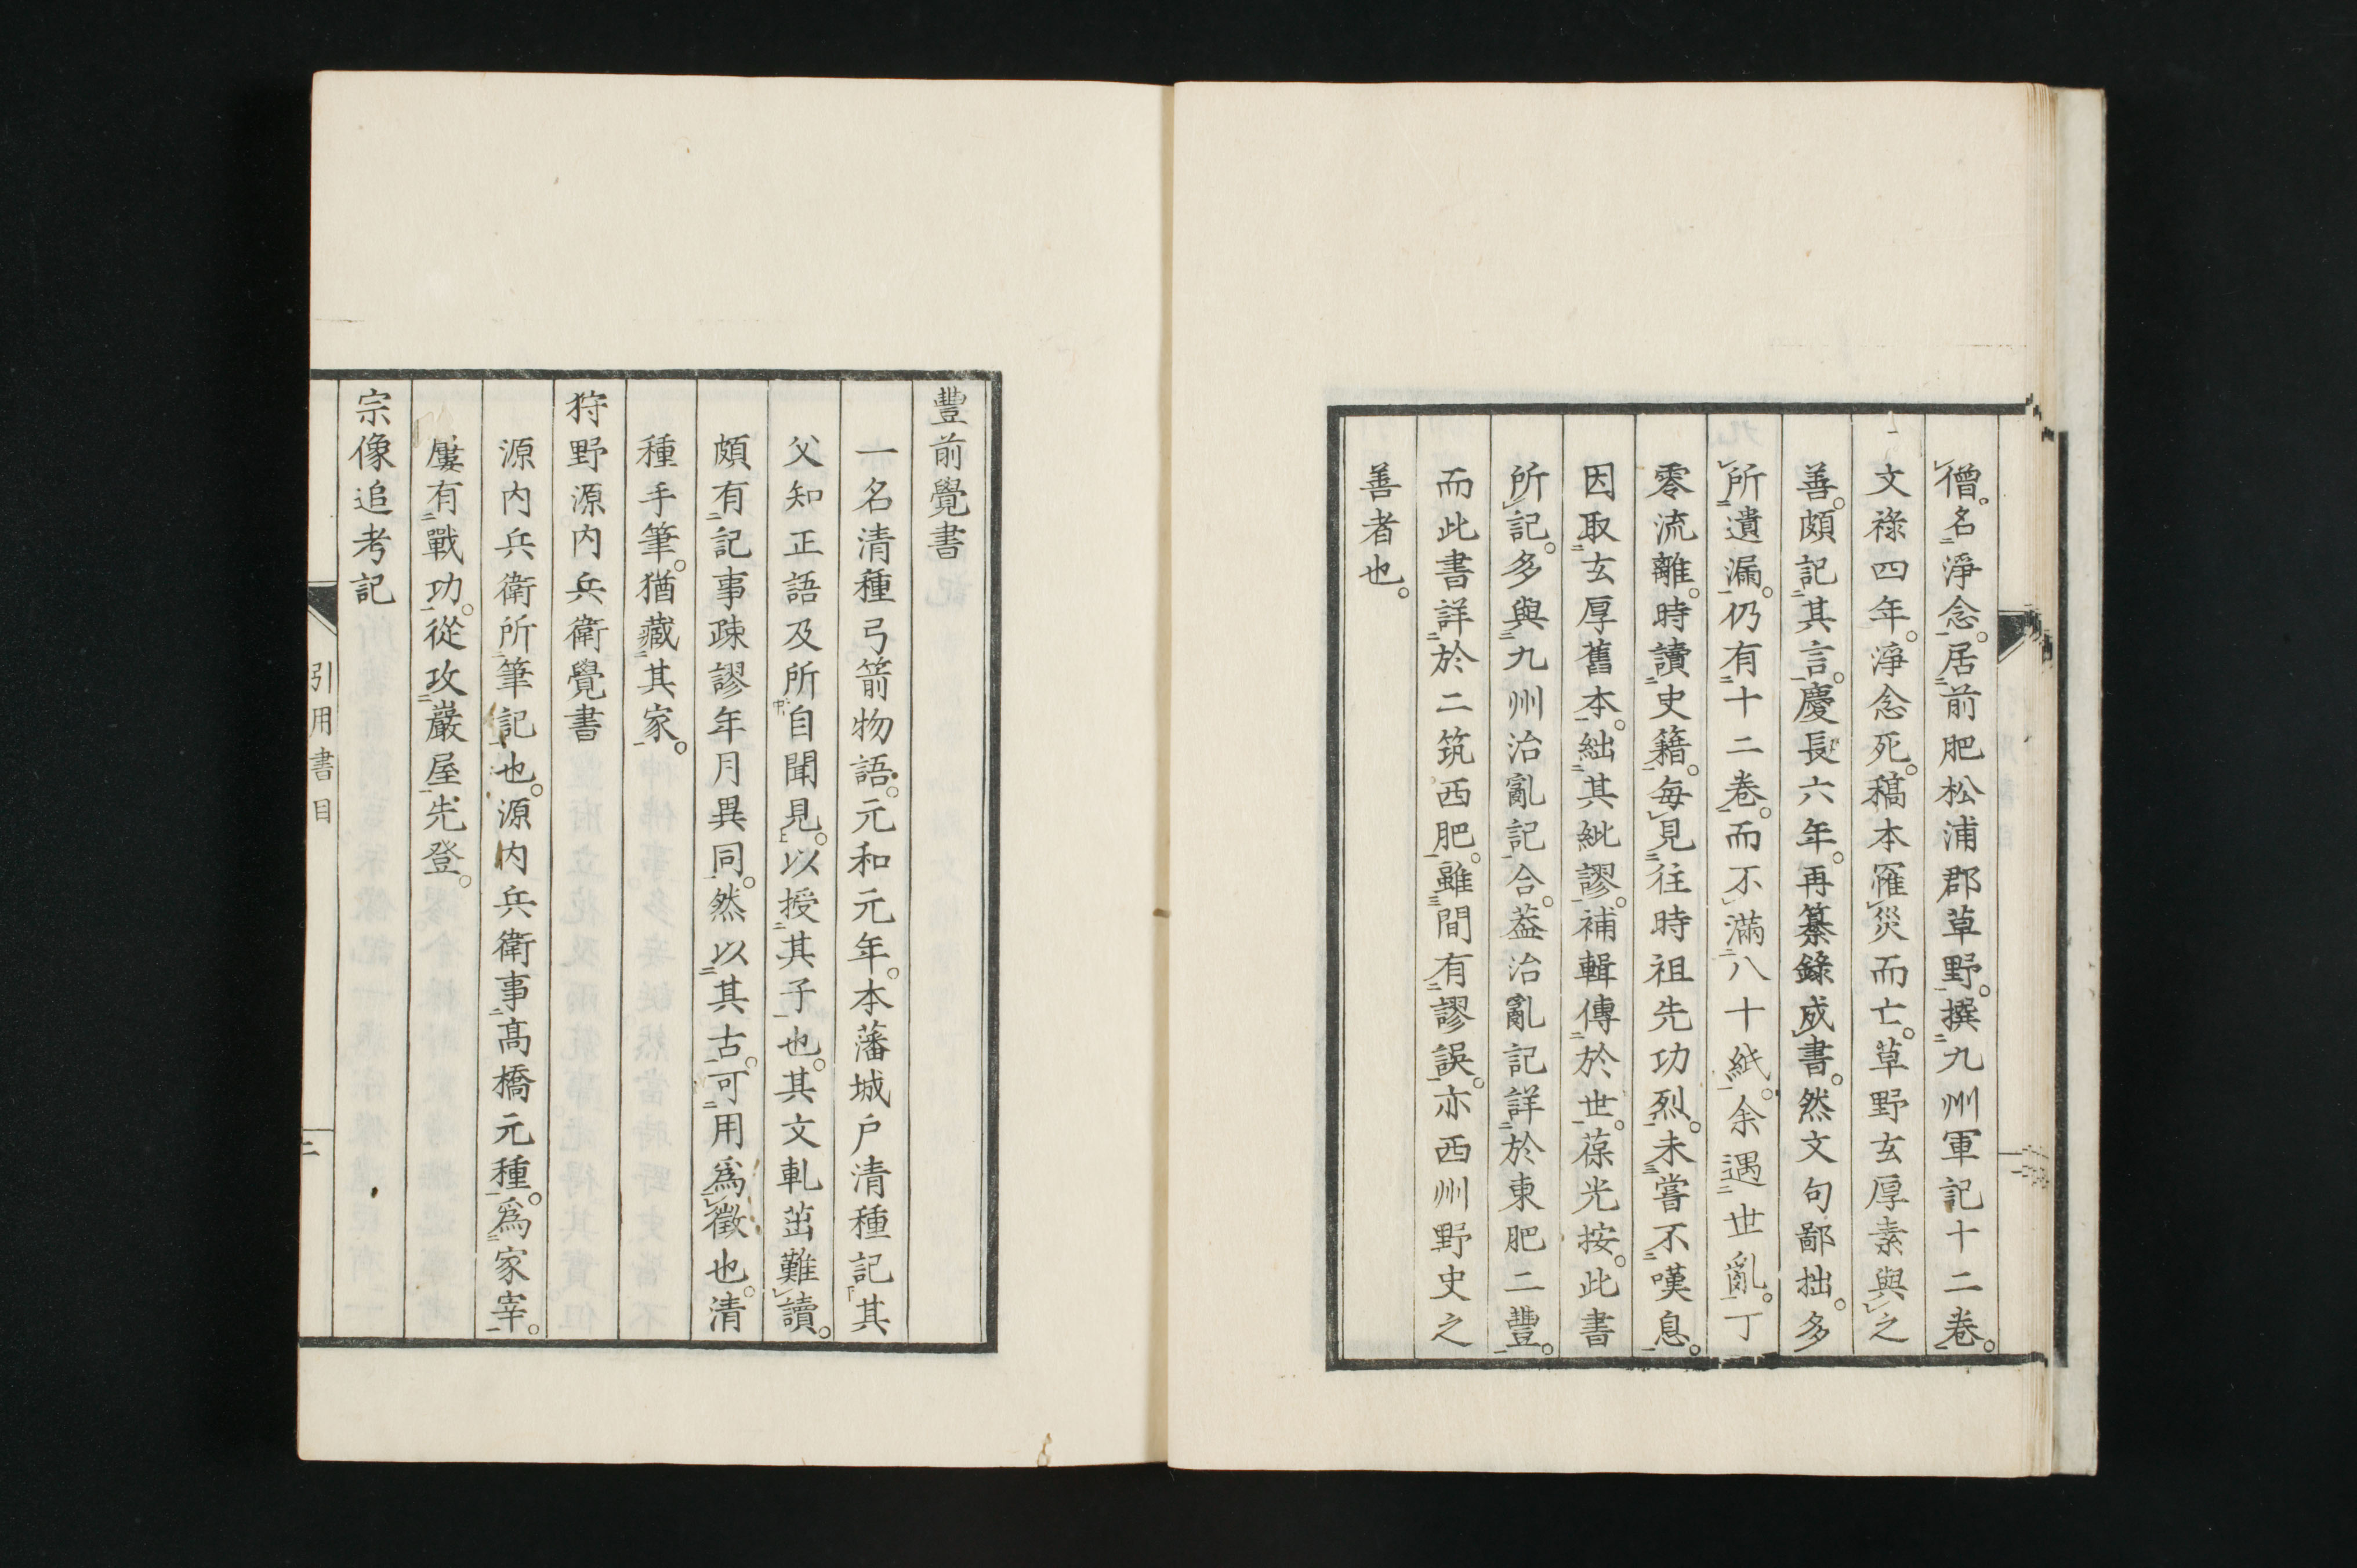 僧。名淨念。居前肥松浦郡草野。撰九州軍記十二卷。
文祿四年。淨念死。稿本罹災而亡。草野玄厚素與之
善。頗記其言。慶長六年。再纂錄成書。然文句鄙拙。多
所遺漏。仍有十二卷。而不滿八十紙。余遇世亂。丁
零流離。時讀史籍。每見往時祖先功烈。未嘗不嘆息。
因取玄厚舊本。絀其紕謬。補輯傳於世。葆光按。此書
所記。多與九州治亂記合。葢治亂記詳於東肥二豐。
而此書詳於二筑西肥。雖間有謬誤。亦西州野史之
善者也。
豐前覺書
一名清種弓箭物語。元和元年。本藩城户清種記其
父知正語及所自聞見。以授其子也。其文軋茁難讀。
頗有記事疎謬年月異同。然以其古。可用爲徵也。清
種手筆。猶藏其家。
狩野源内兵衛覺書
源内兵衛所筆記也。源内兵衛事高橋元種。爲家宰。
屢有戰功。從攻巖屋先登。
宗像追考記
引用書目
二